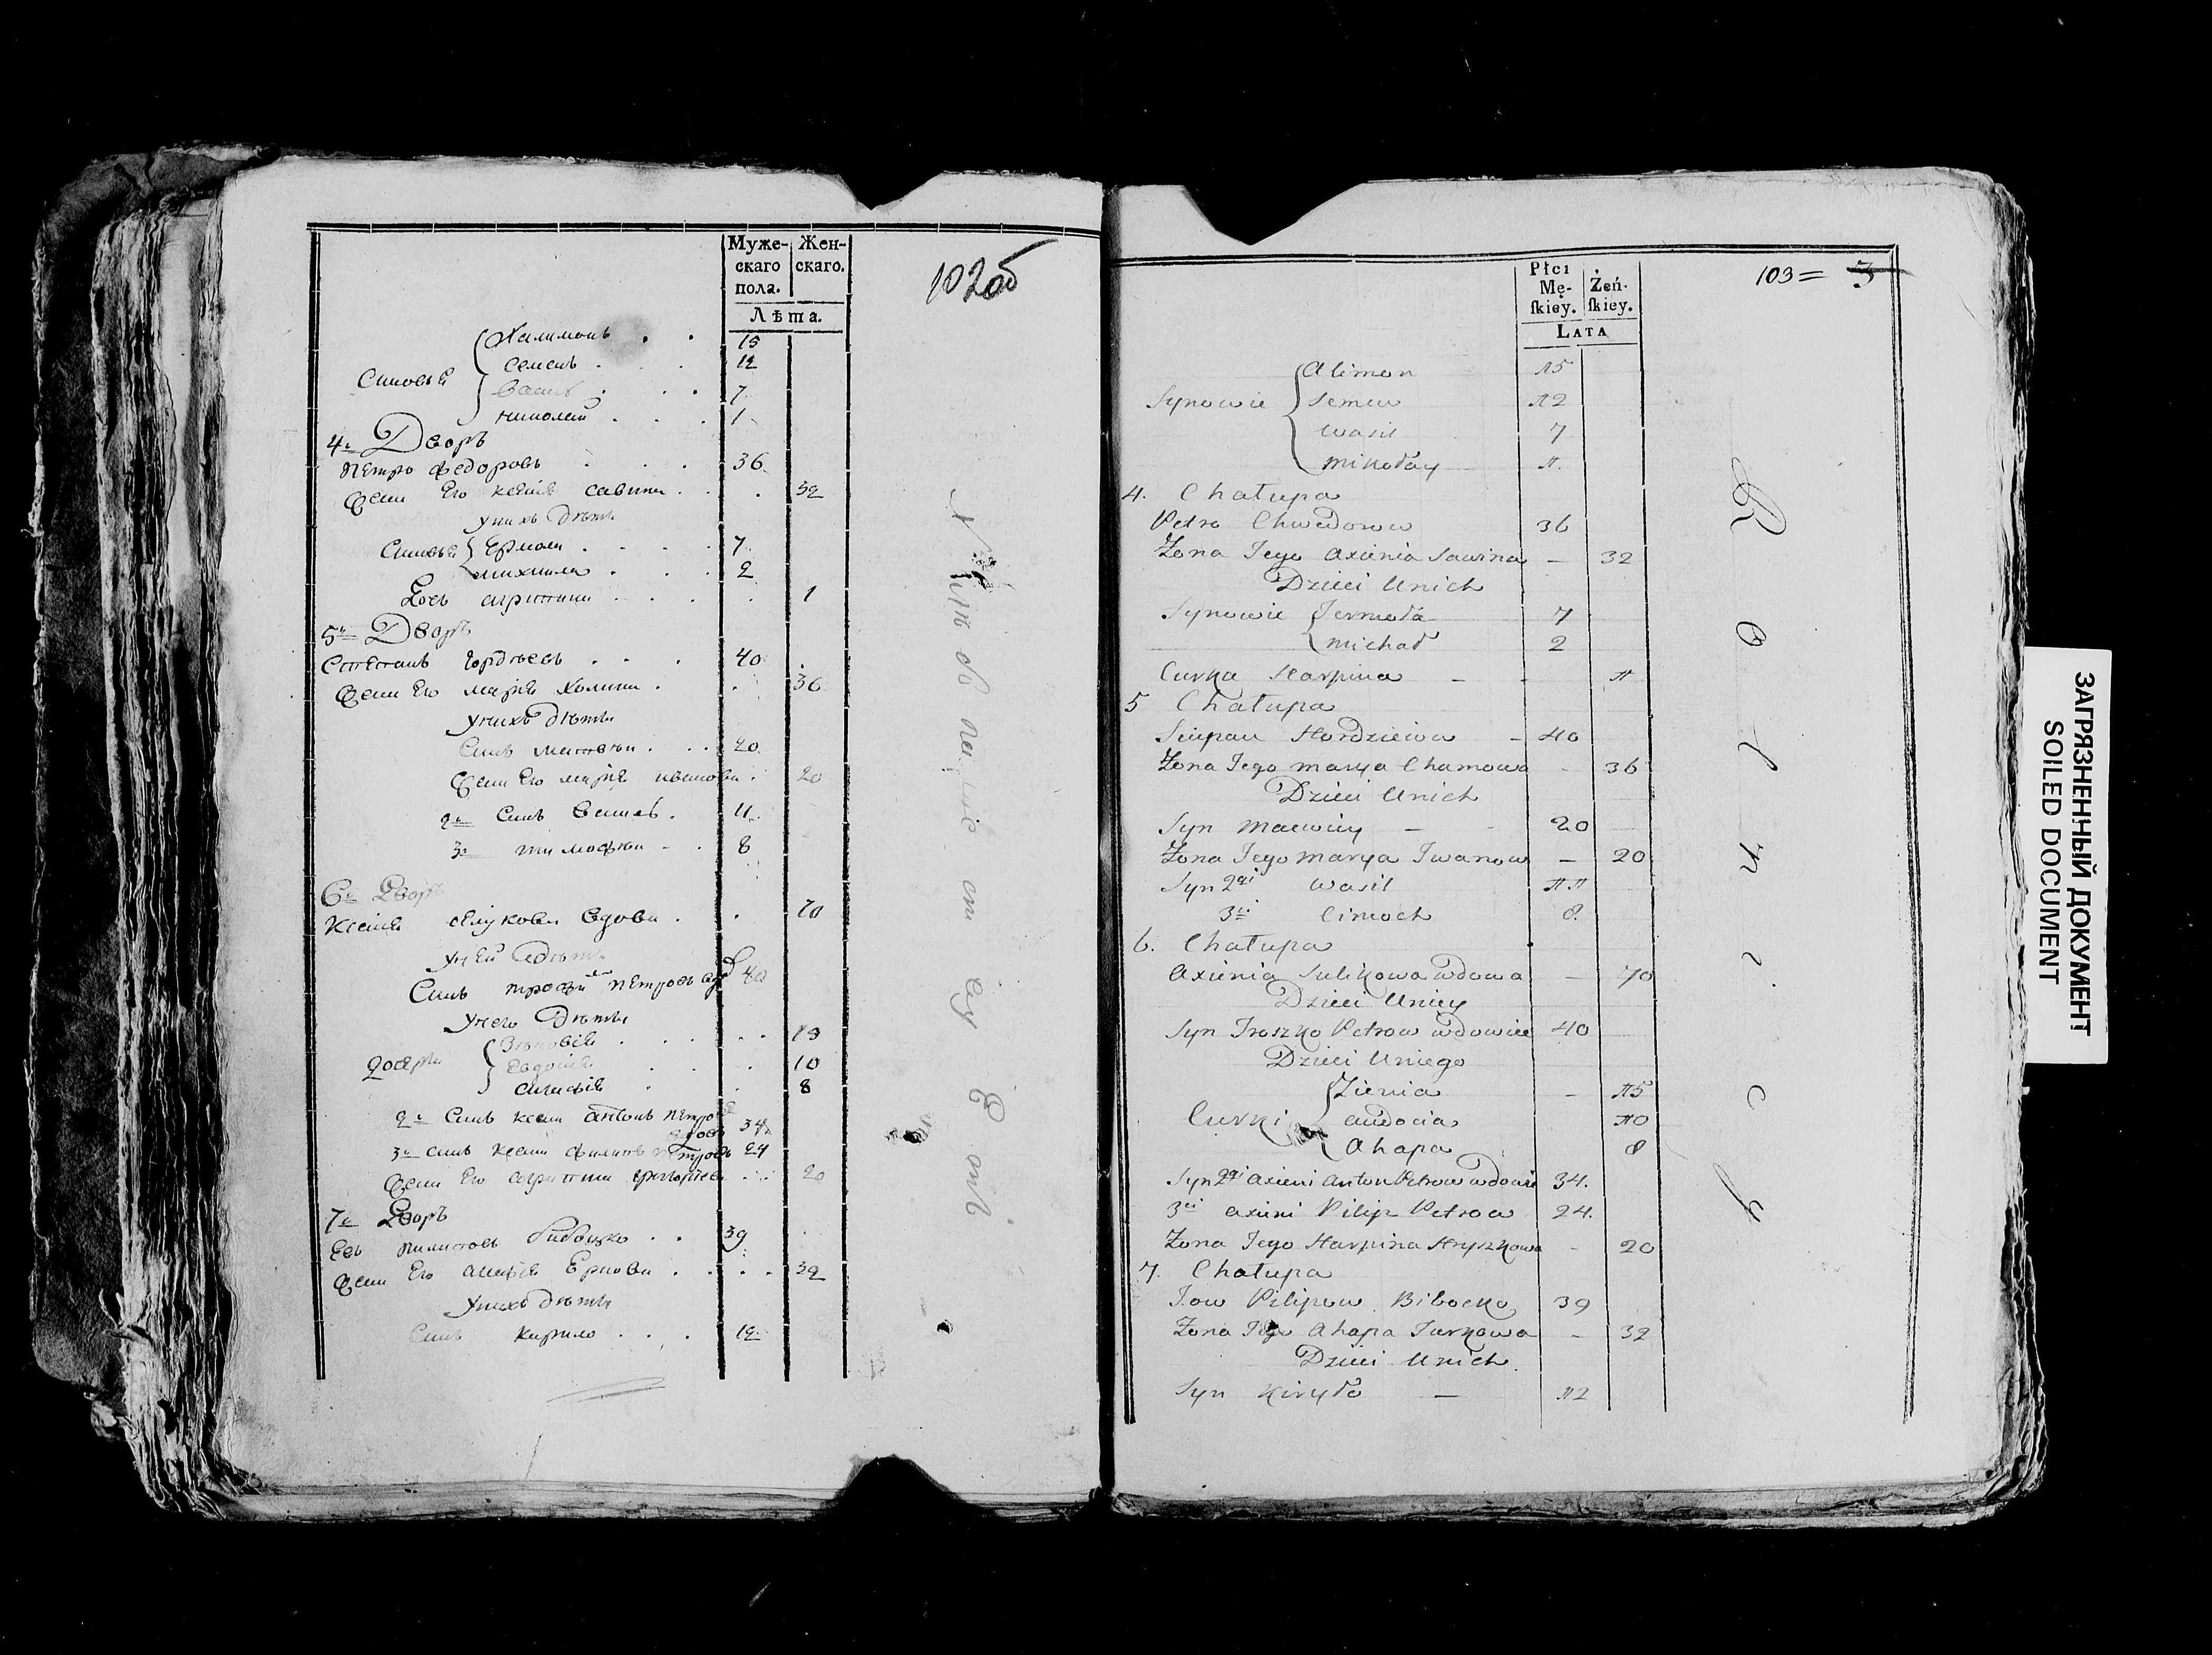 Муже-
скаго
пола.
Жен-
скаго.
Лѣта.
102об
Синовья
Халимонъ 15
Семенъ 12
Василь 7
Николай 1
4й Дворъ
Петро Федоровъ 36
Жена Его Ксенія Савина 32
У нихъ Дѣти
Синовья Ермола 7
Михаила 2
Дочь Агрипина 1
5й Дворъ
Степанъ Гордѣевъ 40
Жена Его Марія Хомина 36
У нихъ Дѣти
Синъ Матвѣй 20
Жена Его Марія Иванова 20
2й Синъ Василь 11
3й Тимофѣй 8
6й Дворъ
Ксенія Вдова 70
У ней Дѣти
Синъ Петровъ 40
У него Дѣти
Дочери
Зѣновія 15
Евдокія 10
Агафія 8
2й Синъ Ксени Антонъ Петровъ 34
3й Синъ Ксени Филипъ Петровъ 24
Жена Его Агрипина 20
7й Дворъ
Евъ Пилиповъ Бибоцко 39
Жена Его Агафія 32
У нихъ Дѣти
Синъ Кирило 12
Płci
Mę-
ſkiey.
Żeń-
ſkiey.
LATA
103= 3
Synowie
Alimon 15
Semen 12
Wasil 7
Mikołay 1.
4. Chałupa
Petro Chwedorow 36
Żona Jego Axienia Sawina — 32
Dzieci Unich
Synowie Jermoła 7
Michał 2
Curka Harpina — - 1
5 Chałupa
Sciepan Hordzieiow - 40
Żona Jego Marya Chamowa - 36
Dzieci Unich
Syn Maciwiey — 20
Żona Jego Marya Iwanow — 20
Syn 2gi Wasil 11
3ci Cimoch 8.
6. Chałupa
Axienia Sulikowa wdowa — 70
Dzieci Uniey
Syn Troszko Petrow wdowiec 40
Dzieci Uniego
Curki
Zienia - 15
Audocia 10
Ahapa 8
Syn 2gi Axieni Anton Petrow wdowie 34.
3ci Axieni Pilip Petrow 24.
Żona Jego Harpina Hryszkowa - 20
7. Chałupa
Jow Pilipow Bibocko 39
Żona Jego Ahapa Jurkowa - 32
Dzieci Unich.
Syn Kiryło — 12
ЗАГРЯЗНЕННЫЙ ДОКУМЕНТ
SOILED DOCUMENT